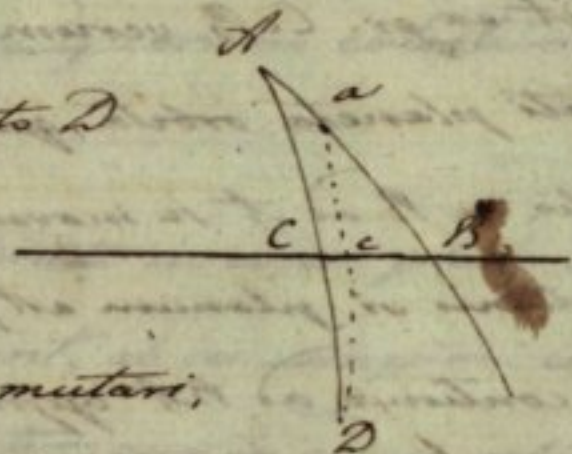 A
a
to D
C c B
mutari,
D